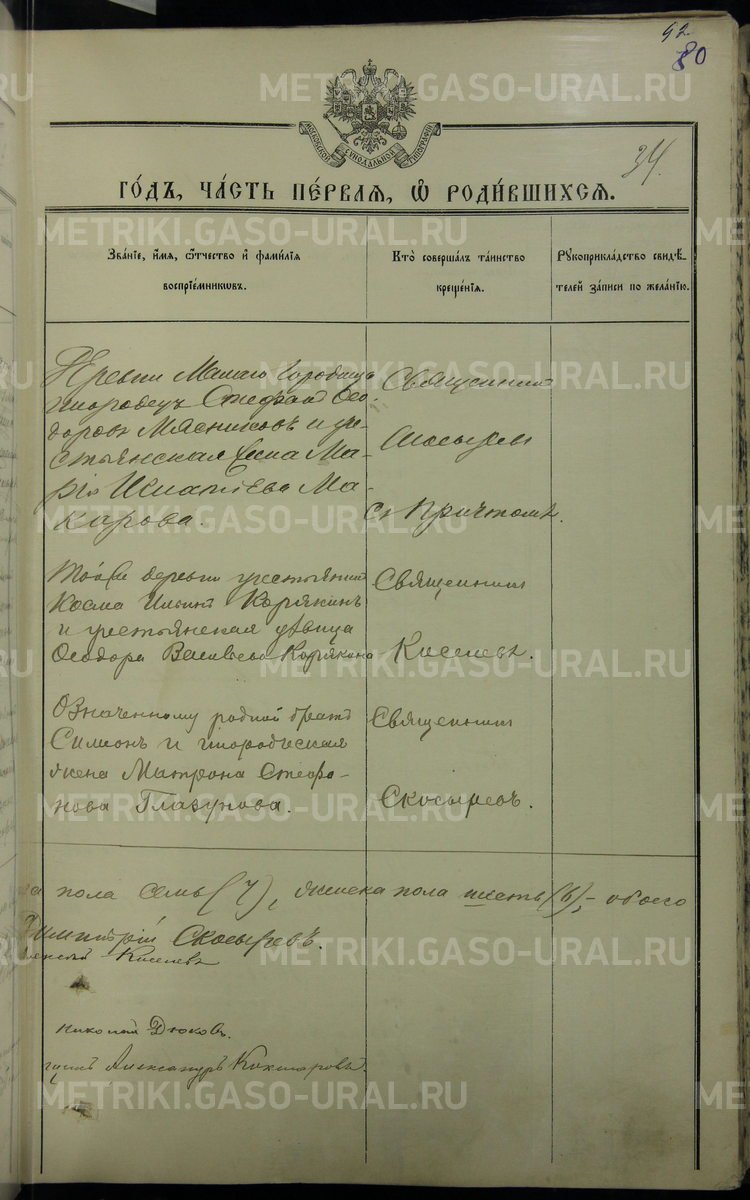 92
80
МОСКОВСКОЙ СѴНОДАЛЬНОЙ ТИПОГРАФІИ
34.
ГО́ДЪ, ЧА́СТЬ ПЕ́РВАѦ, Ѽ РОДИ́ВШИХСѦ.
Зва́нїе, и́мѧ, ѻ҆́тчество и҆ фами́лїѧ
воспрїе́мникѡвъ.
Кто̀ соверша́лъ та́инство
креще́нїѧ.
Рꙋкоприкла́дство свидѣ́-
телей за́писи по жела́нїю.
Деревни Малаго Городища
инородецъ Стефанъ Ѳео-
доровъ Мясниковъ и кре-
стьянская жена Ма-
рія Игнатіева Ма-
карова.
Священникъ
Скосыревъ
Съ Причтомъ.
Той же деревни крестьянинъ
Косма Ильинъ Корякинъ
и крестьянская дѣвица
Ѳеодора Васильева Корякина
Священникъ
Киселевъ.
Означенному родной братъ
Симеонъ и инородческая
жена Матрона Стефа-
нова Глазунова.
Священникъ
Скосыревъ.
пола семь (7), женска пола шесть (6), – обоего
Димитрій Скосыревъ.
Киселевъ
Николай Дюковъ.
Александръ
METRIKI.GASO-URAL.RU